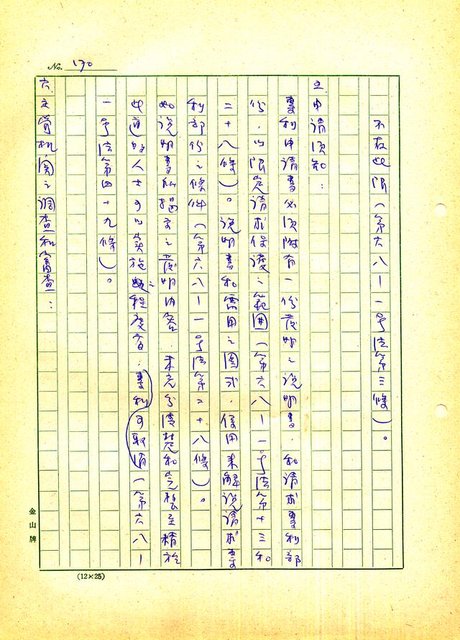 No. 170
不在此限(第六八—一号法第三條)。
五申請須知:
專利申請書必須附有一份发明之说明書,和請求專利部
份,以限定請求保護之範囲(第六八—一号法第十三和
二十八條)。说明書和需用之圖式,係用來解说請求專
利部份之條件(第六八—一号法第二十八條)。
如说明書所揭示之发明内容,未充分清楚和完整至精於
此道的人士可以实施之程度者,專利可取消(第六八—
一号法第四十九條)。
六、主管机関之調查和審查:
金山牌
(12×25)